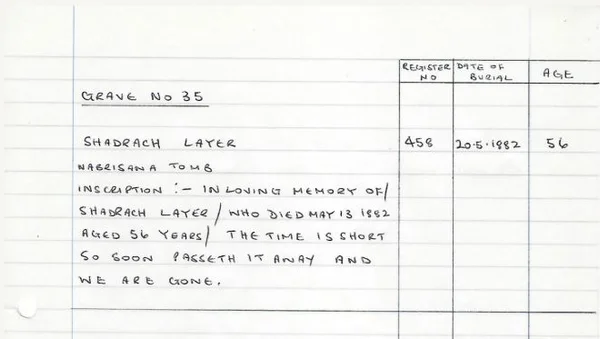 REGISTER NO DATE OF BURIAL AGE
GRAVE NO 35
SHADRACH LAYER 458 20.5.1882 56
NABRISANA TOMB
INSCRIPTION :- IN LOVING MEMORY OF/
SHADRACH LAYER / WHO DIED MAY 13 1882
AGED 56 YEARS/ THE TIME IS SHORT
SO SOON PASSETH IT AWAY AND
WE ARE GONE.